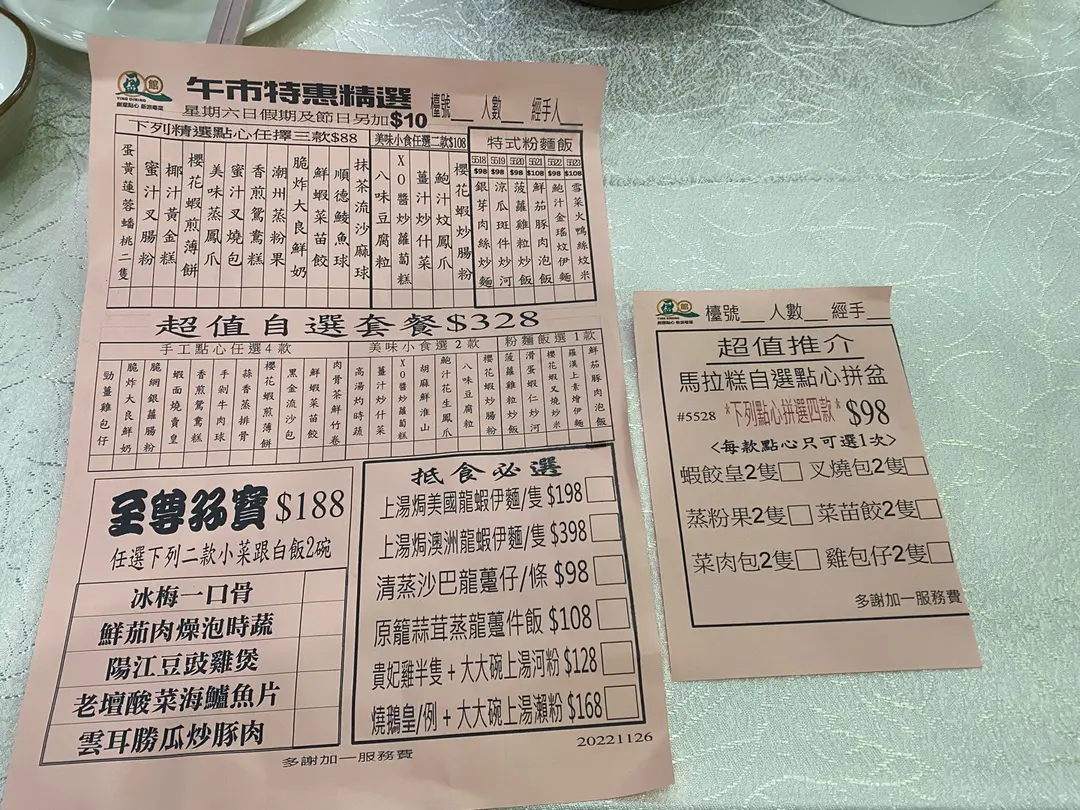 館
YING DINING
創意點心 新派粵菜
午市特惠精選
檯號___人數___經手人___
星期六日假期及節日另加$10
下列精選點心任擇三款$88
蛋黃蓮蓉蟠桃二隻
蜜汁叉腸粉
椰汁黃金糕
櫻花蝦煎薄餅
美味蒸鳳爪
蜜汁叉燒包
香煎鴛鴦糕
潮州蒸粉果
脆炸大良鮮奶
鮮蝦菜苗餃
順德鯪魚球
抹茶流沙麻球
美味小食任選二款$108
八味豆腐粒
XO醬炒蘿蔔糕
薑汁炒什菜
鮑汁炆鳳爪
櫻花蝦炒腸粉
特式粉麵飯
5518 5519 5520 5521 5522 5523
$98 $98 $98 $108 $98 $108
銀芽肉絲炒麵
涼瓜斑件炒河
菠蘿雞粒炒飯
鮮茄豚肉泡飯
鮑汁金瑤炆伊麵
雪菜火鴨絲炆米
超值自選套餐$328
手工點心任選4款
勁薑雞包仔
脆炸大良鮮奶
脆網銀蘿腸粉
蝦面燒賣皇
香煎鴛鴦糕
手剁牛肉球
蒜香蒸排骨
櫻花蝦煎薄餅
黑金流沙包
鮮蝦菜苗餃
肉骨茶鮮竹卷
美味小食選2款
高湯灼時蔬
薑汁炒什菜
XO醬炒蘿蔔糕
胡麻鮮淮山
鮑汁花生鳳爪
八味豆腐粒
櫻花蝦炒腸粉
粉麵飯選1款
菠蘿雞粒炒飯
滑蛋蝦仁炒河
櫻花蝦叉燒炒米
羅漢上素燴伊麵
鮮茄豚肉泡飯
至尊孖寶$188
任選下列二款小菜跟白飯2碗
冰梅一口骨
鮮茄肉燥泡時蔬
陽江豆豉雞煲
老壇酸菜海鱸魚片
雲耳勝瓜炒豚肉
抵食必選
上湯焗美國龍蝦伊麵/隻 $198
上湯焗澳洲龍蝦伊麵/隻 $398
清蒸沙巴龍躉仔/條 $98
原籠蒜茸蒸龍躉件飯 $108
貴妃雞半隻 + 大大碗上湯河粉 $128
燒鵝皇/例 + 大大碗上湯瀨粉 $168
多謝加一服務費
20221126
館
檯號___人數___經手___
超值推介
馬拉糕自選點心拼盆
#5528 *下列點心拼選四款* $98
<每款點心只可選1次>
蝦餃皇2隻 叉燒包2隻
蒸粉果2隻 菜苗餃2隻
菜肉包2隻 雞包仔2隻
多謝加一服務費